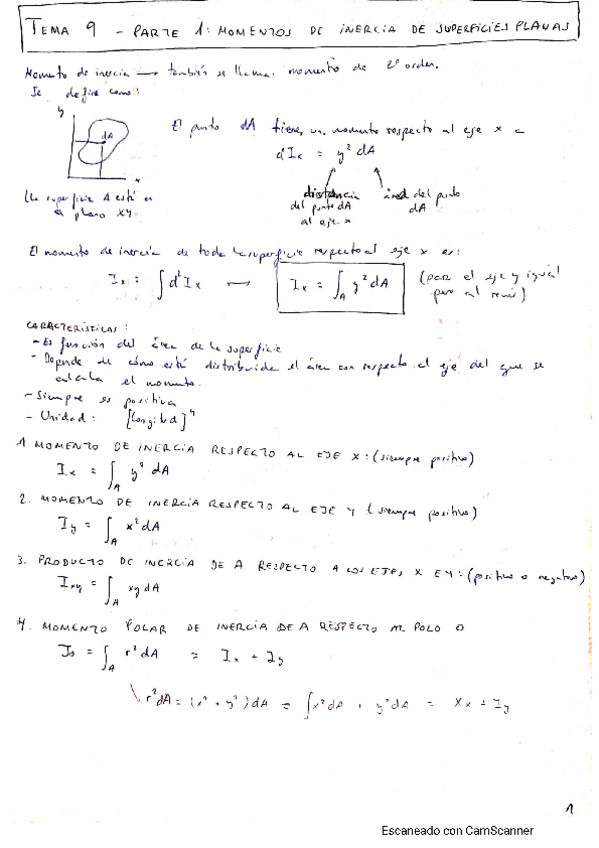 TEMA 9 - PARTE 1: MOMENTOS DE INERCIA DE SUPERFICIES PLANAS
Momento de inercia → también se llama momento de 2º orden.
Se define como:
y
dA
x
El punto dA tiene un momento respecto al eje x =
dIx = y² dA
distancia del punto dA al eje x
área del punto dA
(la superficie A está en el plano XY
El momento de inercia de toda la superficie respecto al eje x es:
Ix = ∫ d²Ix → Ix = ∫A y² dA (para el eje y igual pero al revés)
CARACTERÍSTICAS:
- Es función del área de la superficie
- Depende de cómo está distribuida el área con respecto al eje del que se
calcula el momento.
- Siempre es positiva
- Unidad: [Longitud]⁴
1 MOMENTO DE INERCIA RESPECTO AL EJE X: (siempre positivo)
Ix = ∫A y² dA
2. MOMENTO DE INERCIA RESPECTO AL EJE Y (siempre positivo)
Iy = ∫A x² dA
3. PRODUCTO DE INERCIA DE A RESPECTO A LOS EJES X E Y: (positivo o negativo)
Ixy = ∫A xy dA
4. MOMENTO POLAR DE INERCIA DE A RESPECTO AL POLO O
Jo = ∫A r² dA = Ix + Iy
r² dA = (x² + y²) dA = ∫x² dA + y² dA = Xx + Iy
1
Escaneado con CamScanner